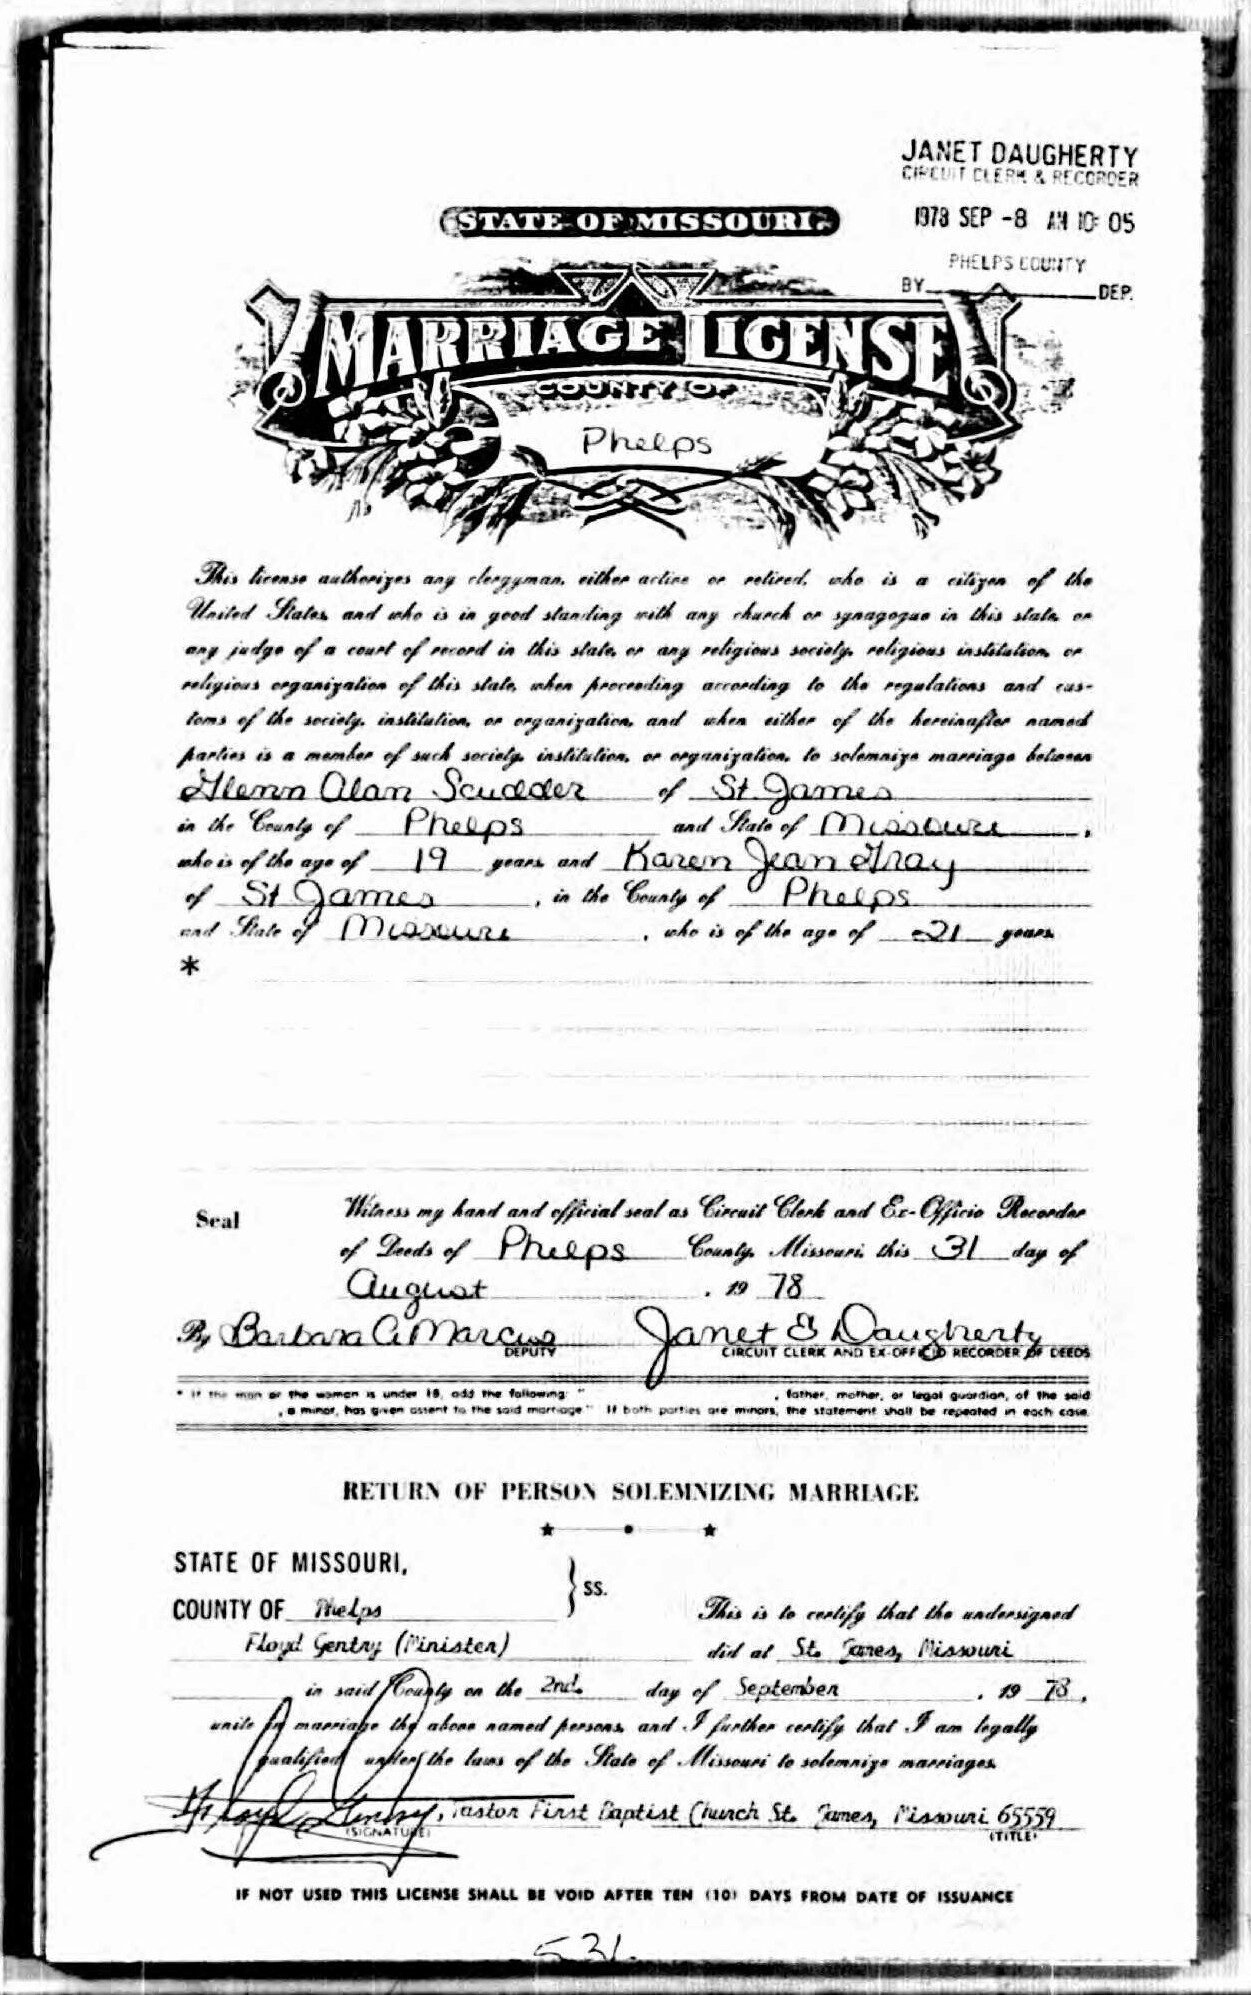 JANET DAUGHERTY
CIRCUIT CLERK & RECORDER
1978 SEP -8 AM 10: 05
PHELPS COUNTY
BY DEP.
STATE OF MISSOURI
MARRIAGE LICENSE
COUNTY OF
Phelps
This license authorizes any clergyman, either active or retired, who is a citizen of the
United States, and who is in good standing with any church or synagogue in this state, or
any judge of a court of record in this state, or any religious society, religious institution, or
religious organization of this state, when proceeding according to the regulations and cus-
toms of the society, institution, or organization, and when either of the hereinafter named
parties is a member of such society, institution, or organization, to solemnize marriage between
Glenn Alan Scudder of St. James
in the County of Phelps and State of Missouri,
who is of the age of 19 years and Karen Jean Gray
of St James, in the County of Phelps
and State of Missouri, who is of the age of 21 years.
*
Seal
Witness my hand and official seal as Circuit Clerk and Ex-Officio Recorder
of Deeds of Phelps County, Missouri, this 31 day of
August, 19 78
By Barbara A Marcus Janet E Daugherty
DEPUTY CIRCUIT CLERK AND EX-OFFICIO RECORDER OF DEEDS
* If the man or the woman is under 18, add the following: " , father, mother, or legal guardian, of the said
, a minor, has given assent to the said marriage." If both parties are minors, the statement shall be repeated in each case.
RETURN OF PERSON SOLEMNIZING MARRIAGE
STATE OF MISSOURI,
COUNTY OF Phelps } SS.
This is to certify that the undersigned
Floyd Gentry (Minister) did at St. James, Missouri
in said County on the 2nd. day of September, 19 78,
unite in marriage the above named persons, and I further certify that I am legally
qualified under the laws of the State of Missouri to solemnize marriages.
Floyd Gentry, Pastor First Baptist Church St. James, Missouri 65559
(SIGNATURE) (TITLE)
IF NOT USED THIS LICENSE SHALL BE VOID AFTER TEN (10) DAYS FROM DATE OF ISSUANCE
531